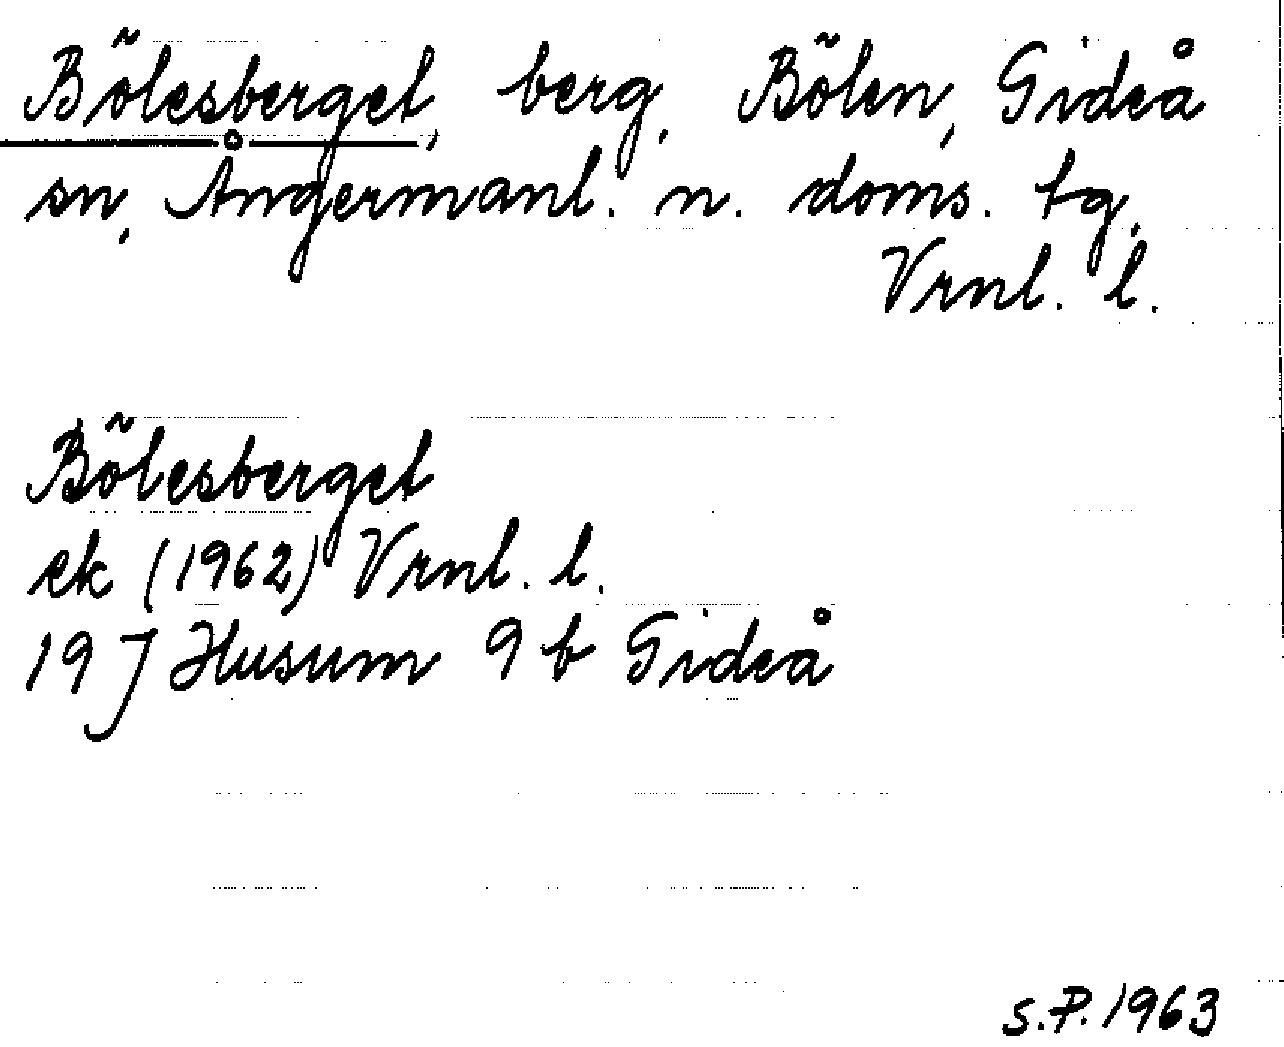 Bölesberget, berg, Bölen, Gideå
sn, Ångermanl. n. doms. tg,
Vrnl. l.
Bölesberget
ek (1962) Vrnl. l.
19 J Husum 9 b Gideå
S.P. 1963